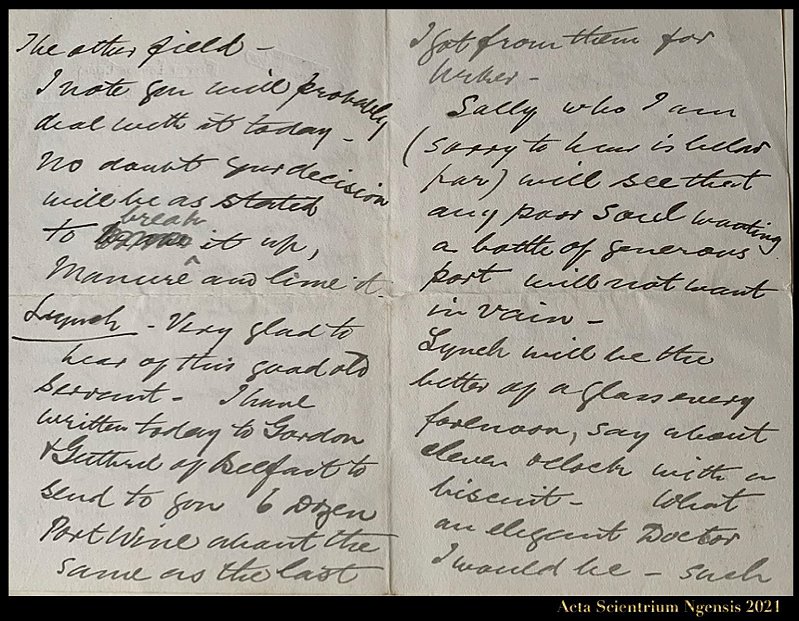 The other field -
I note you will probably
deal with it today -
No doubt your decision
will be as stated
break
to it up,
Manure and lime it -
Lynch - Very glad to
hear of this good old
servant - I have
written today to Gordon
& of Belfast to
send to you 6 Dozen
Port Wine about the
same as the last
I got from them for
Sally who I am
(sorry to hear is below
par) will see that
any poor Soul wanting
a bottle of generous
port will not want
in vain -
Lynch will be the
better of a glass every
forenoon, say about
eleven oclock with a
biscuit - What
an elegant Doctor
I would be - such
Acta Scientrium Ngensis 2021